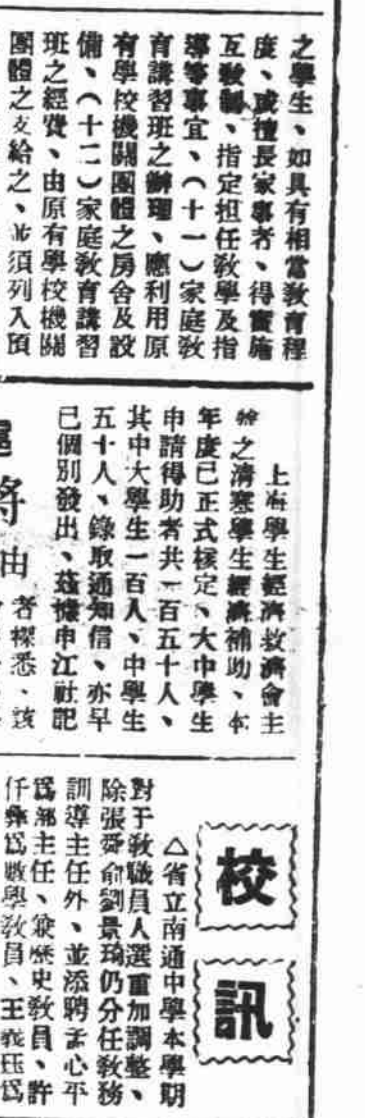 之學生、如具有相當教育程
度、或擅長家事者、得實施
互教制、指定担任教學及指
導等事宜、(十一)家庭教
育講習班之辦理、應利用原
有學校機關團體之房舍及設
備、(十二)家庭教育講習
班之經費、由原有學校機關
團體之支給之、並須列入預
上海學生經濟救濟會主
辦之清寒學生經濟補助、本
年度已正式核定、大中學生
申請得助者共一百五十人、
其中大學生一百人、中學生
五十人、錄取通知信、亦早
已個別發出、茲據申江社記
者探悉、該
將由
校訊
△省立南通中學本學期
對于敎職員人選重加調整、
除張舜俞劉景琦仍分任敎務
訓導主任外、並添聘孟心平
爲部主任、兼歷史敎員、許
仟彝爲數學敎員、王義珏爲